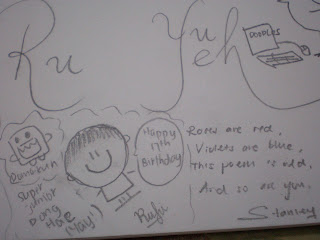 Ru Yeh
DOODLES
Happy
17th
Birthday
Super
Junior
Dong
Hae
(Yay!)
Roses are red,
Violets are blue,
This poem is odd,
And so are you.
Stanley